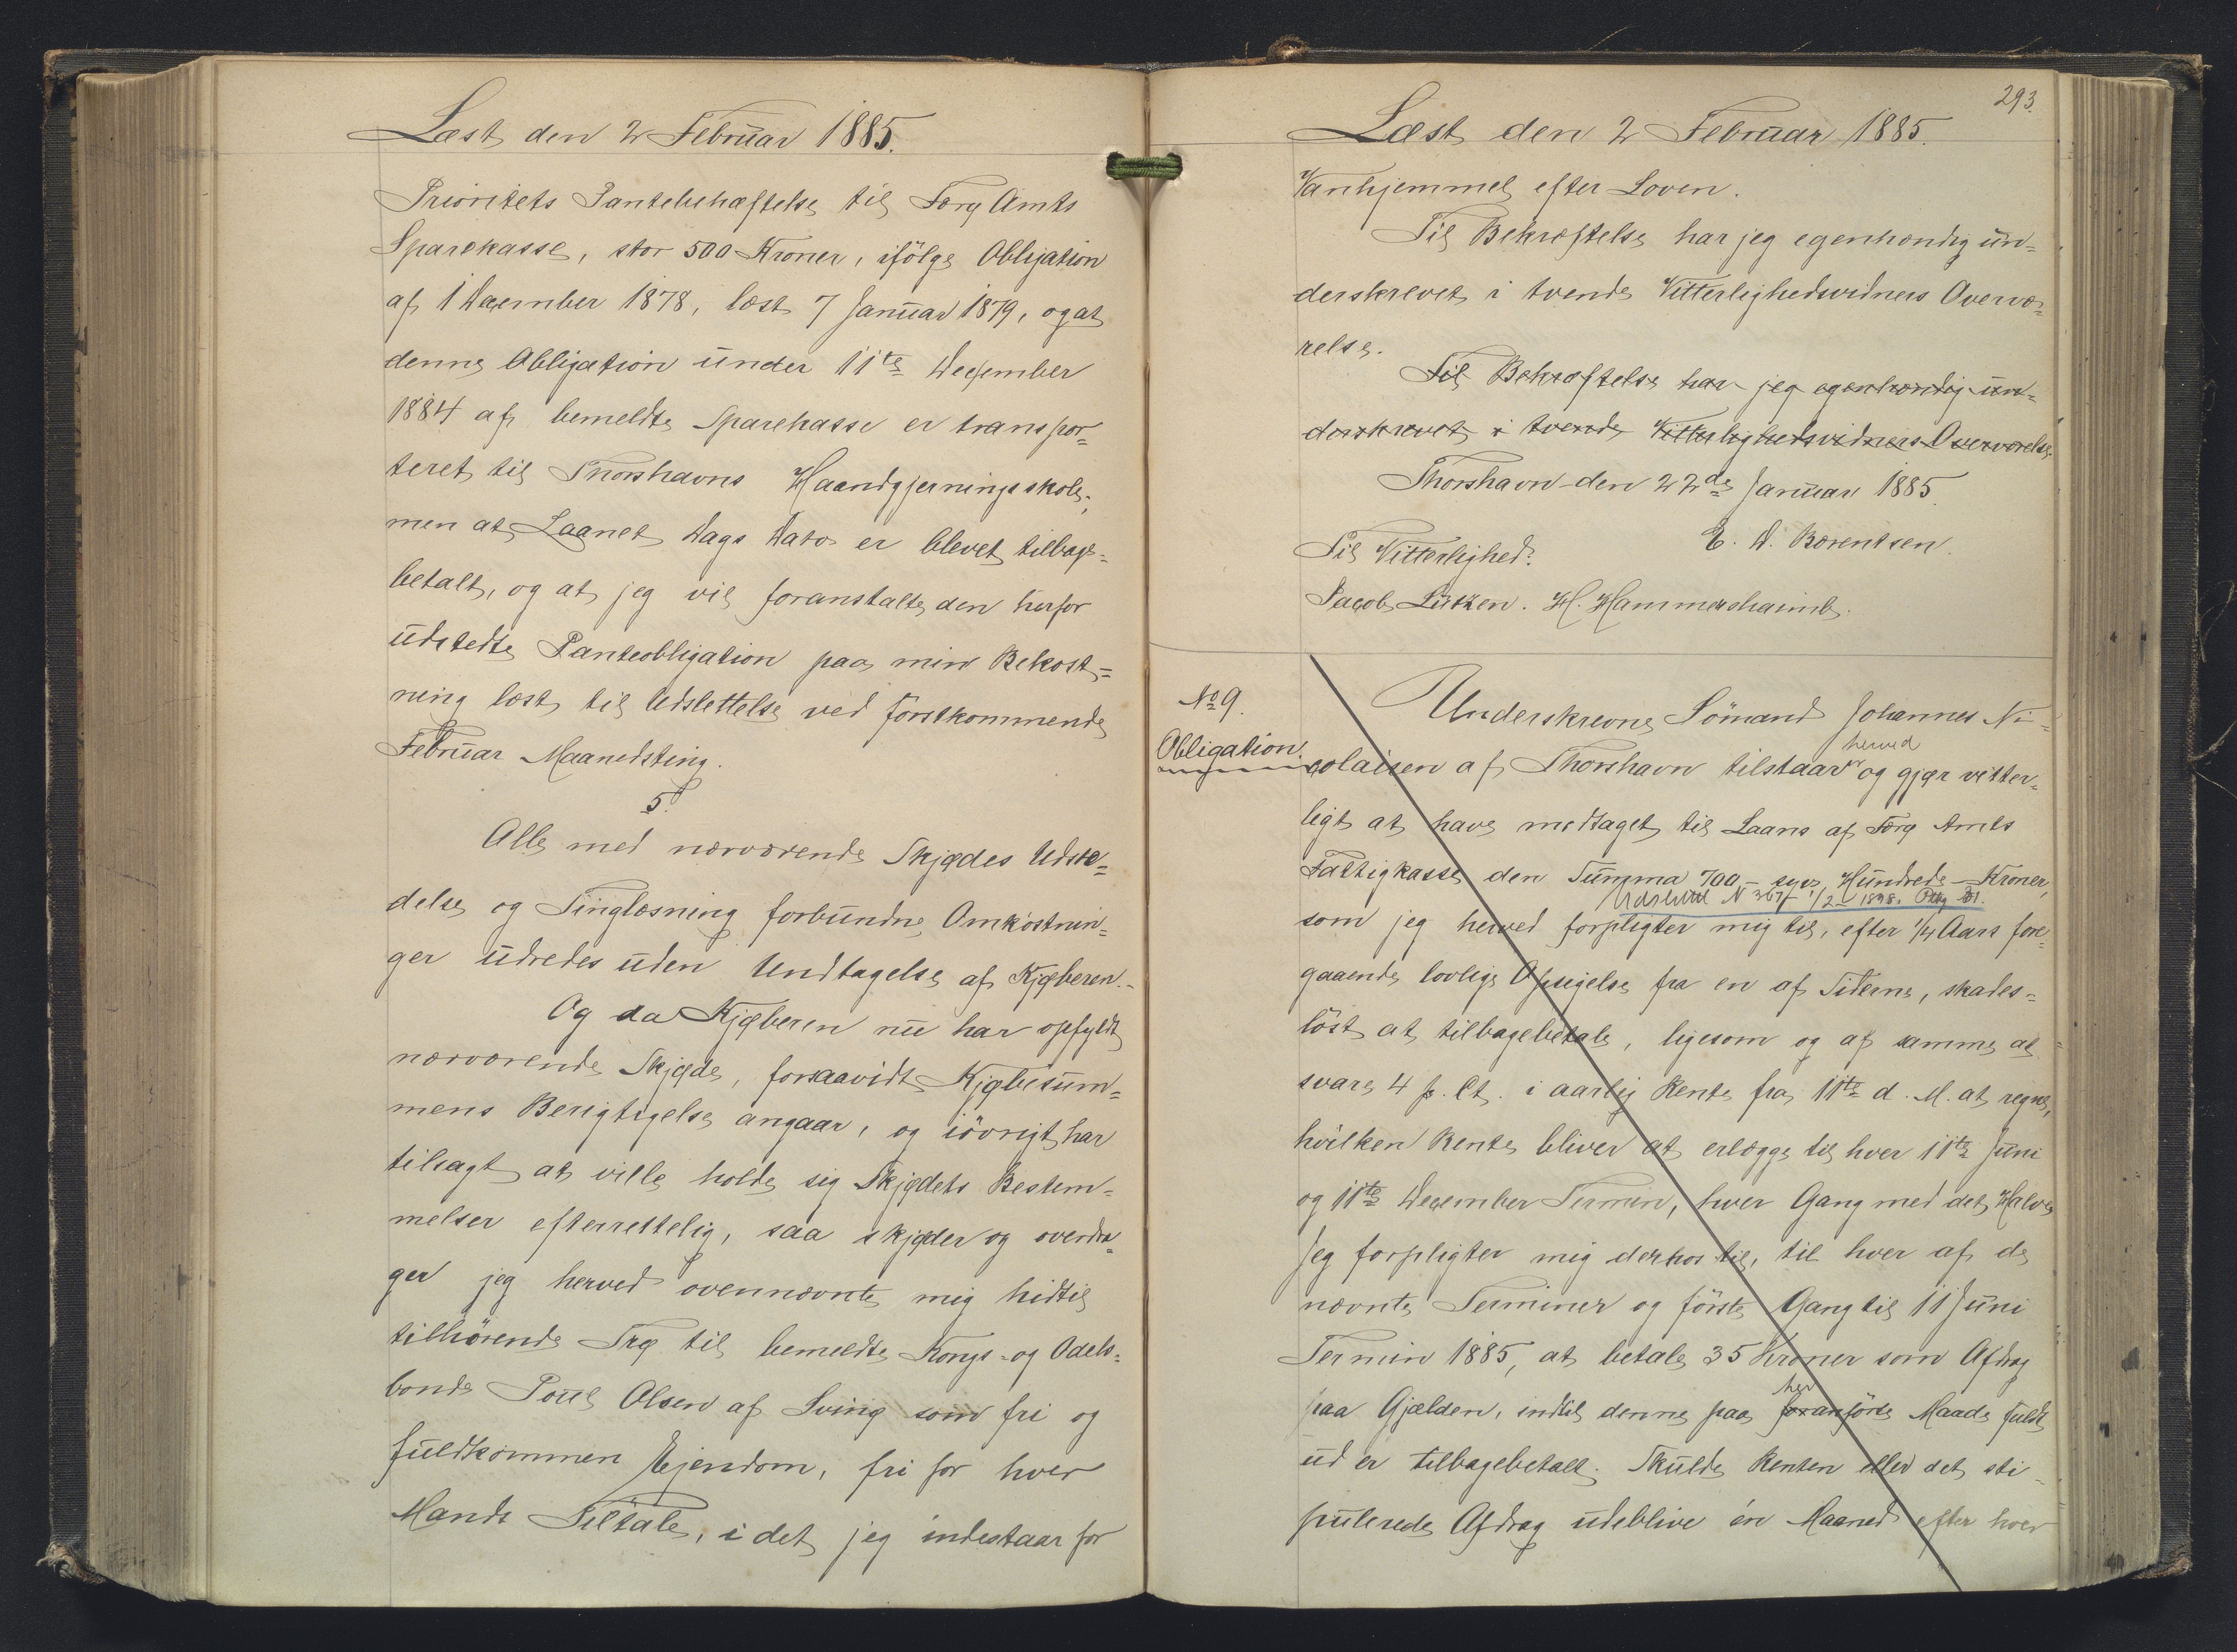 Læst den 2 Februar 1885.
Prioritets Pantebehæftelse til Færø Amts
Sparekasse, stor 500 Kroner, ifölge Obligation
af 1 December 1878, læst 7 Januar 1879, og at
denne Obligation under 11te December
1884 af bemeldte Sparekasse er transpor=
teret til Thorshavns Haandgjerningsskole,
men at Laanet Dags Dato er blevet tilbage=
betalt, og at jeg vil foranstalte den herfor
udstedte Panteobligation paa min Bekost=
ning læst til Udslettelse ved förstkommende
Februar Maanedsting.
5.
Alle med nærværende Skjødes Udste=
delse og Tinglæsning forbundne Omkostnin=
ger udredes uden Undtagelse af Kjøberen.
Og da Kjøberen nu har opfyldt
nærværende Skjøde, forsaavidt Kjøbesum=
mens Berigtigelse angaar, og iövrigt har
tilsagt at ville holde sig Skjødets Bestem=
melser efterrettelig, saa skjøder og overdra=
ger jeg herved ovennævnte mig hidtil
tilhörende Træ til bemeldte Kongs- og Odels=
bonde Poul Olsen af Sving som fri og
fuldkommen Ejendom, fri for hver
Mands Tiltale, i det jeg indestaar for
293.
Læst den 2 Februar 1885.
Vanhjemmel efter Loven.
Til Bekræftelse har jeg egenhændig un=
derskrevet i tvende Vitterlighedsvidners Overvæ=
relse.
Til Bekræftelse har jeg egenhændig un=
derskrevet i tvende Vitterlighedsvidners Overværelse.
Thorshavn den 22de Januar 1885.
E. D. Bærentsen.
Til Vitterlighed:
Jacob Lützen. H. Hammershaimb.
No 9.
Obligation.
Underskrevne Sömand Johannes Ni=
herved
colaisen af Thorshavn tilstaar og gjør vitter=
ligt at have modtaget til Laans af Færø Amts
Fattigkasse den Summa 700 - syv Hundrede - Kroner,
Udslettet N 367 1/2 1898.
som jeg herved forpligter mig til, efter 1/4 Aars fore=
gaaende lovlige Opsigelse fra en af Siderne, skades=
löst at tilbagebetale, ligesom og af samme at
svare 4 p. Ct. i aarlig Rente fra 11te d. M. at regne,
hvilken Rente bliver at erlægge til hver 11te Juni
og 11te December Termin, hver Gang med det Halve
Jeg forpligter mig derhos til, til hver af de
nævnte Terminer og förste Gang til 11 Juni
Termin 1885, at betale 35 Kroner som Afdrag
her
paa Gjælden, indtil denne paa foranförte Maade fuldt
ud er tilbagebetalt. Skulde Renten eller det sti=
pulerede Afdrag udeblive én Maaned efter hver